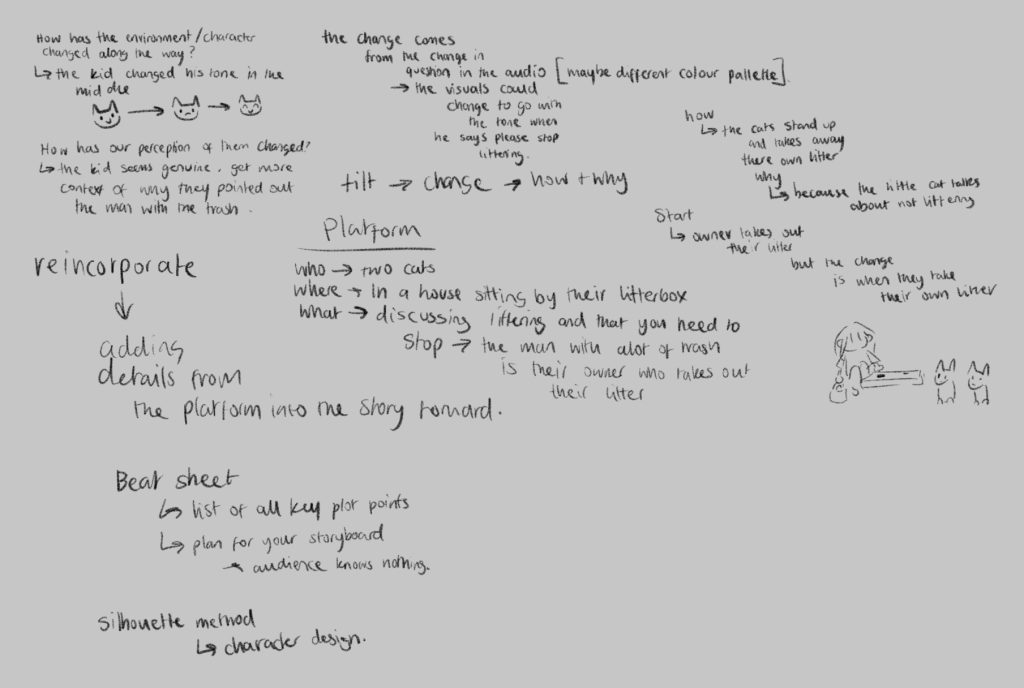 How has the environment/character
changed along the way?
↳ the kid changed his tone in the
middle
How has our perception of them changed?
↳ the kid seems genuine, get more
context of why they pointed out
the man with the trash.
the change comes
from the change in
question in the audio [maybe different colour pallette].
→ the visuals could
change to go with
the tone when
he says please stop
littering.
tilt → change → how + why
how
↳ the cats stand up
and takes away
there own litter
why
↳ because the little cat talks
about not littering
Start
↳ owner takes out
their litter
but the change
is when they take
their own litter
Platform
who → two cats
where → in a house sitting by their litterbox
what → discussing littering and that you need to
stop → the man with alot of trash
is their owner who takes out
their litter
reincorporate
↓
adding
details from
the platform into the story forward.
Beat sheet
↳ list of all key plot points
↳ plan for your storyboard
→ audience knows nothing.
silhouette method
↳ character design.